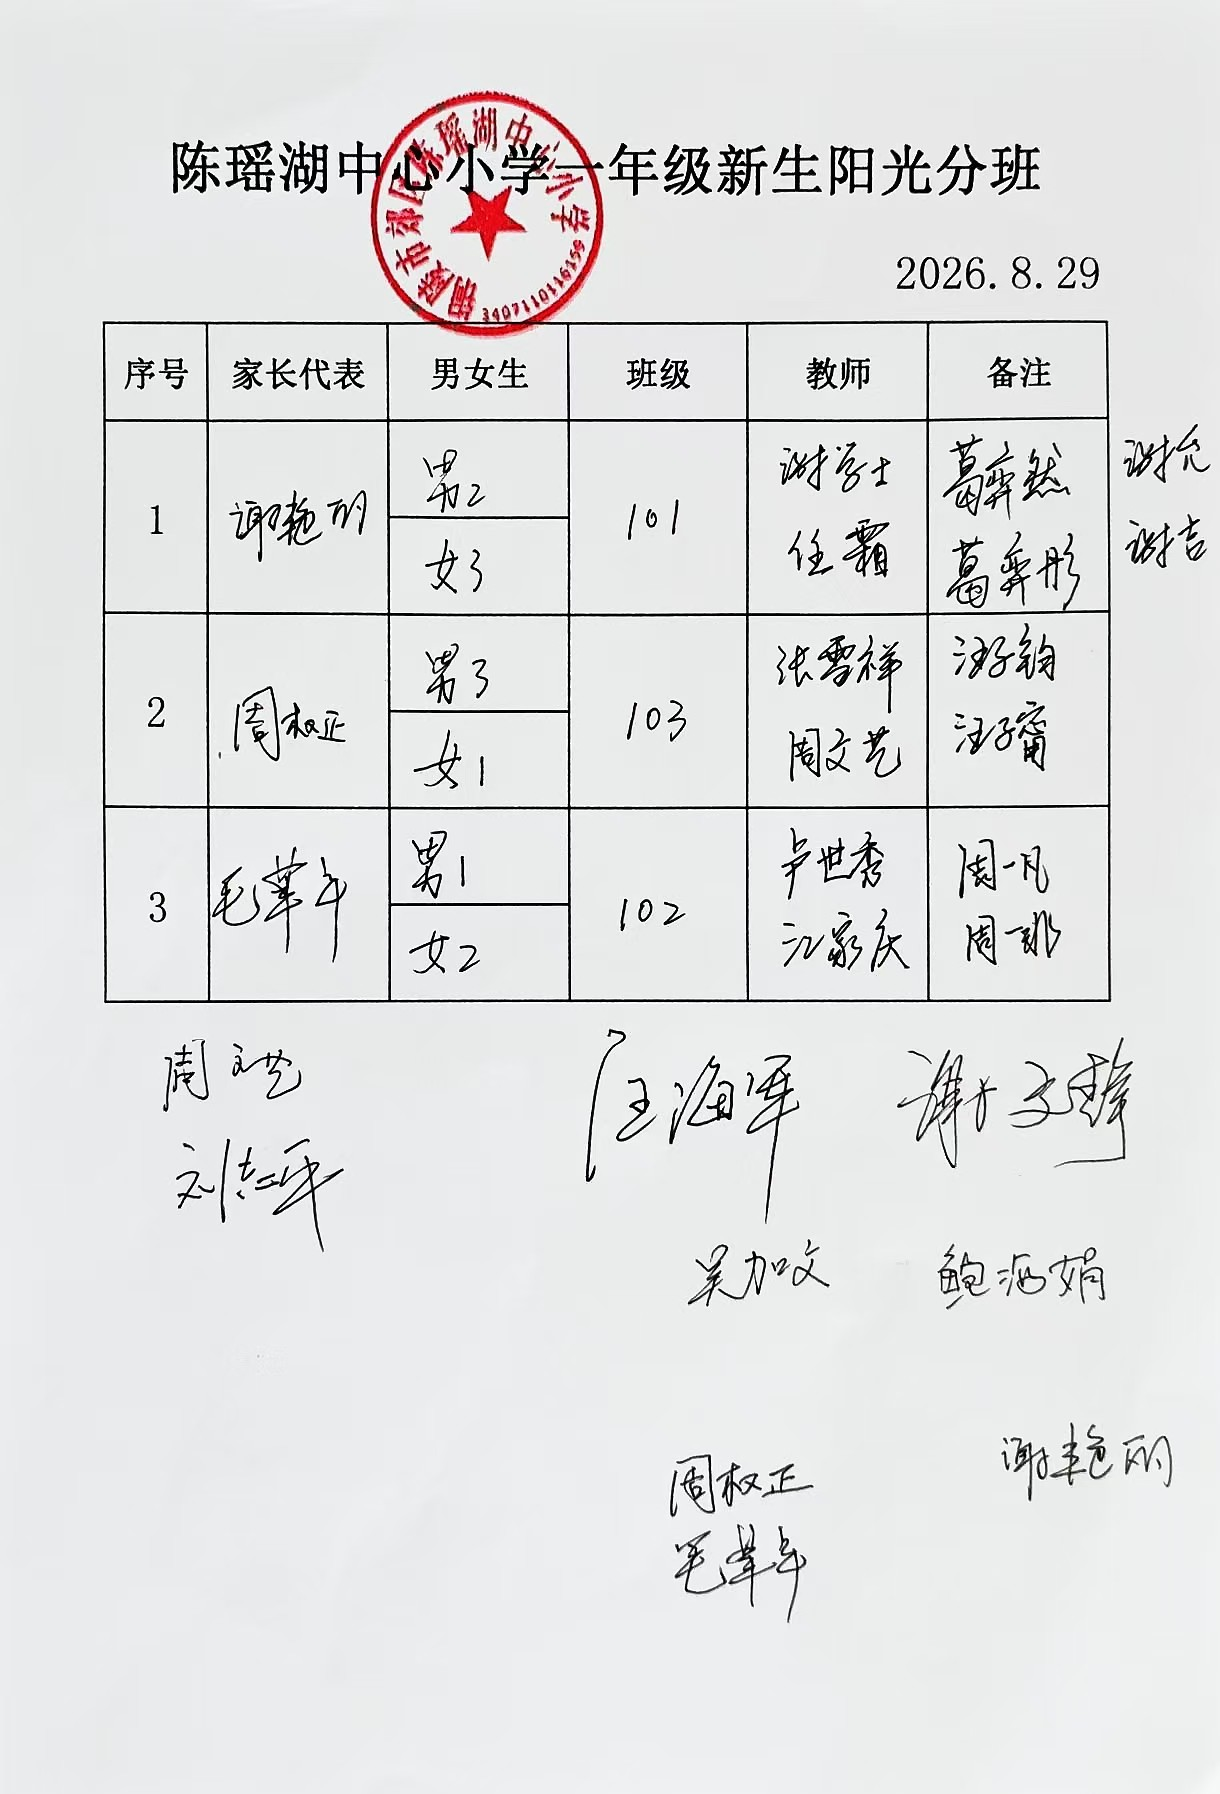 陈瑶湖中心小学一年级新生阳光分班
铜陵市郊区陈瑶湖中心小学
3407110116159
2026.8.29
序号 家长代表 男女生 班级 教师 备注
1 谢艳丽 男2 101 谢学士 葛弈然 谢允
女3 任霜 葛弈彤 谢吉
2 周权正 男3 103 张雪祥 汪子钧
女1 周文艺 汪子甯
3 毛苹年 男1 102 卢世秀 周一凡
女2 江家庆 周一
周文艺 汪海军 谢文静
刘志平
吴加文 鲍海娟
谢艳丽
周权正
毛苹年